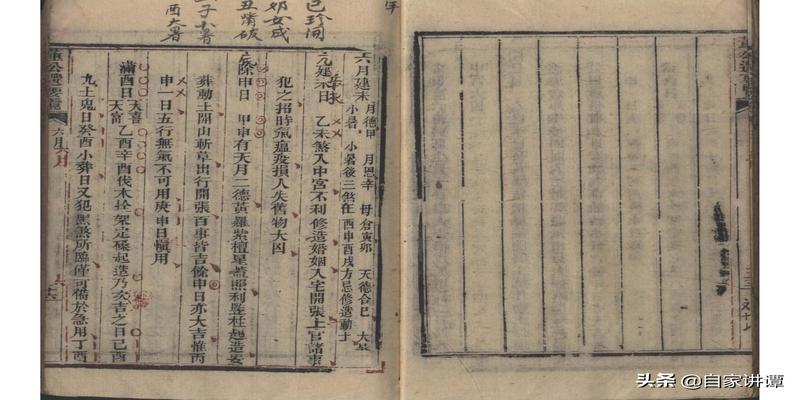 六月建未 月德甲 月恩辛 母倉寅卯 天德合巳
小暑 小暑後三煞在西申酉戌方忌修造動土
建未日 乙未煞入中宮不利修造婚姻入宅開張上官諸事
犯之招時氣瘟疫損人失舊物大凶
除申日 甲申有天月二德黃羅紫檀星蓋照利竪柱起造安
葬動土開山斬草出行開張百事皆吉餘申日亦大吉惟丙
申一日五行無氣不可用庚申日慎用
滿酉日 天喜 天富 乙酉辛酉伐木拴架定磉起造乃次吉之日己酉
九土鬼日癸酉小葬日又犯黑煞所臨僅可備於急用丁酉
董公選要覽 六月
子小暑
酉大暑
丑清破
卯女成
巳珍開
头条 @自家讲谭